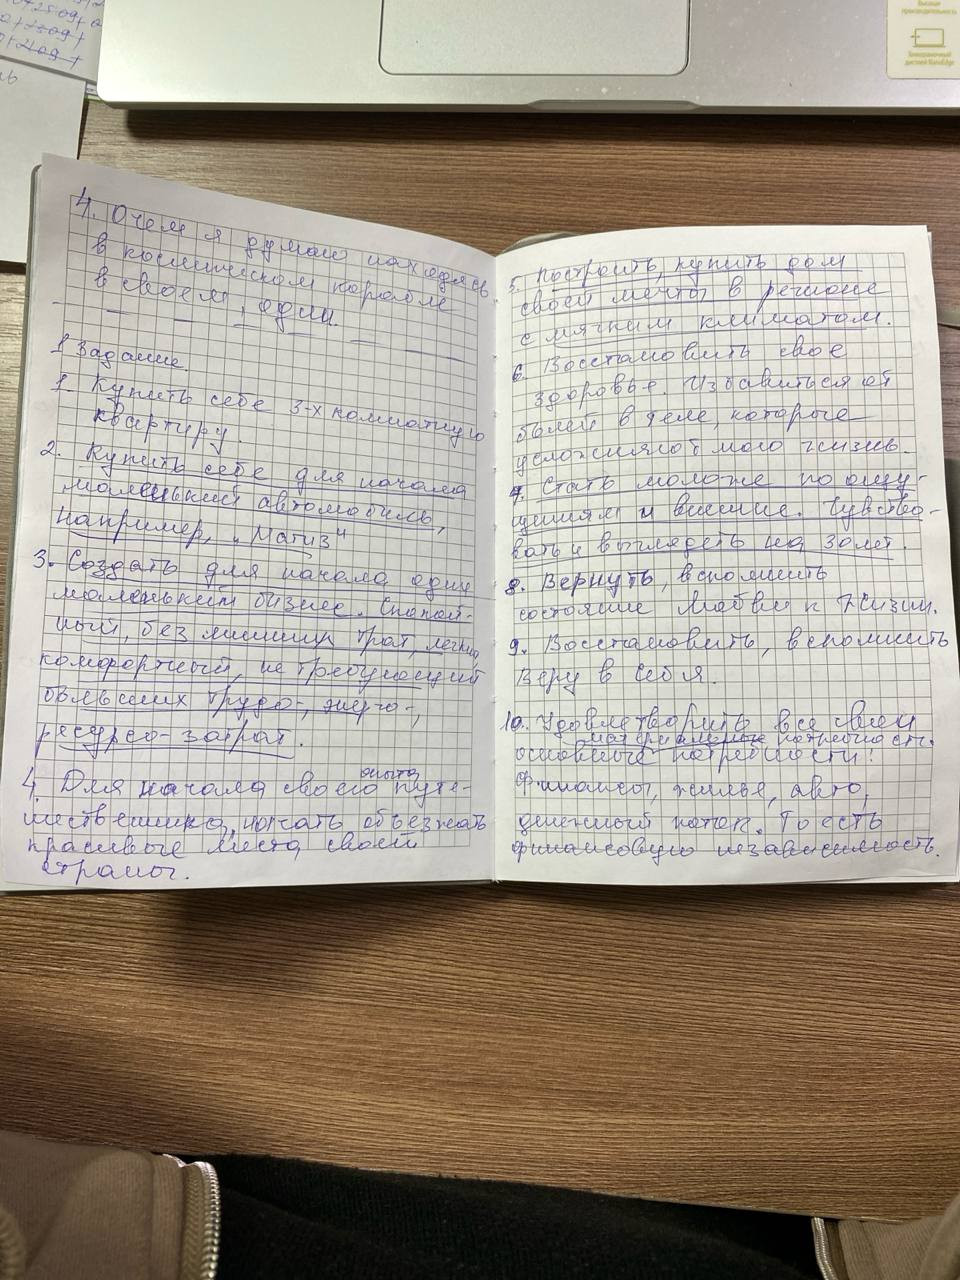 4. О чем я думаю находясь
в космическом корабле
в своем, один.
1 Задание.
1. Купить себе 3-х комнатную
квартиру.
2. Купить себе для начала
маленький автомобиль,
например, "Матиз"
3. Создать для начала один
маленький бизнес. Спокой-
ный, без лишних трат, легкий,
комфортный, не требующий
больших трудо-, энерго-,
ресурсо-затрат.
опыта
4. Для начала своего путе-
шественника, начать объезжать
красивые места своей
страны.
5. Построить, купить дом
своей мечты в регионе
с мягким климатом.
6. Восстановить свое
здоровье. Избавиться от
болей в теле, которые
усложняют мою жизнь.
7. Стать моложе по ощу-
щениям и внешне. Чувство-
вать и выглядеть на 30 лет.
8. Вернуть, вспомнить
состояние Любви к Жизни.
9. Восстановить, вспомнить
Веру в Себя.
10. Удовлетворить все свои
материальные потребности.
основные потребности!
Финансы, жилье, авто,
денежный поток. То есть
финансовую независимость.
Высшая
производительность
Безрамочный
дисплей NanoEdge